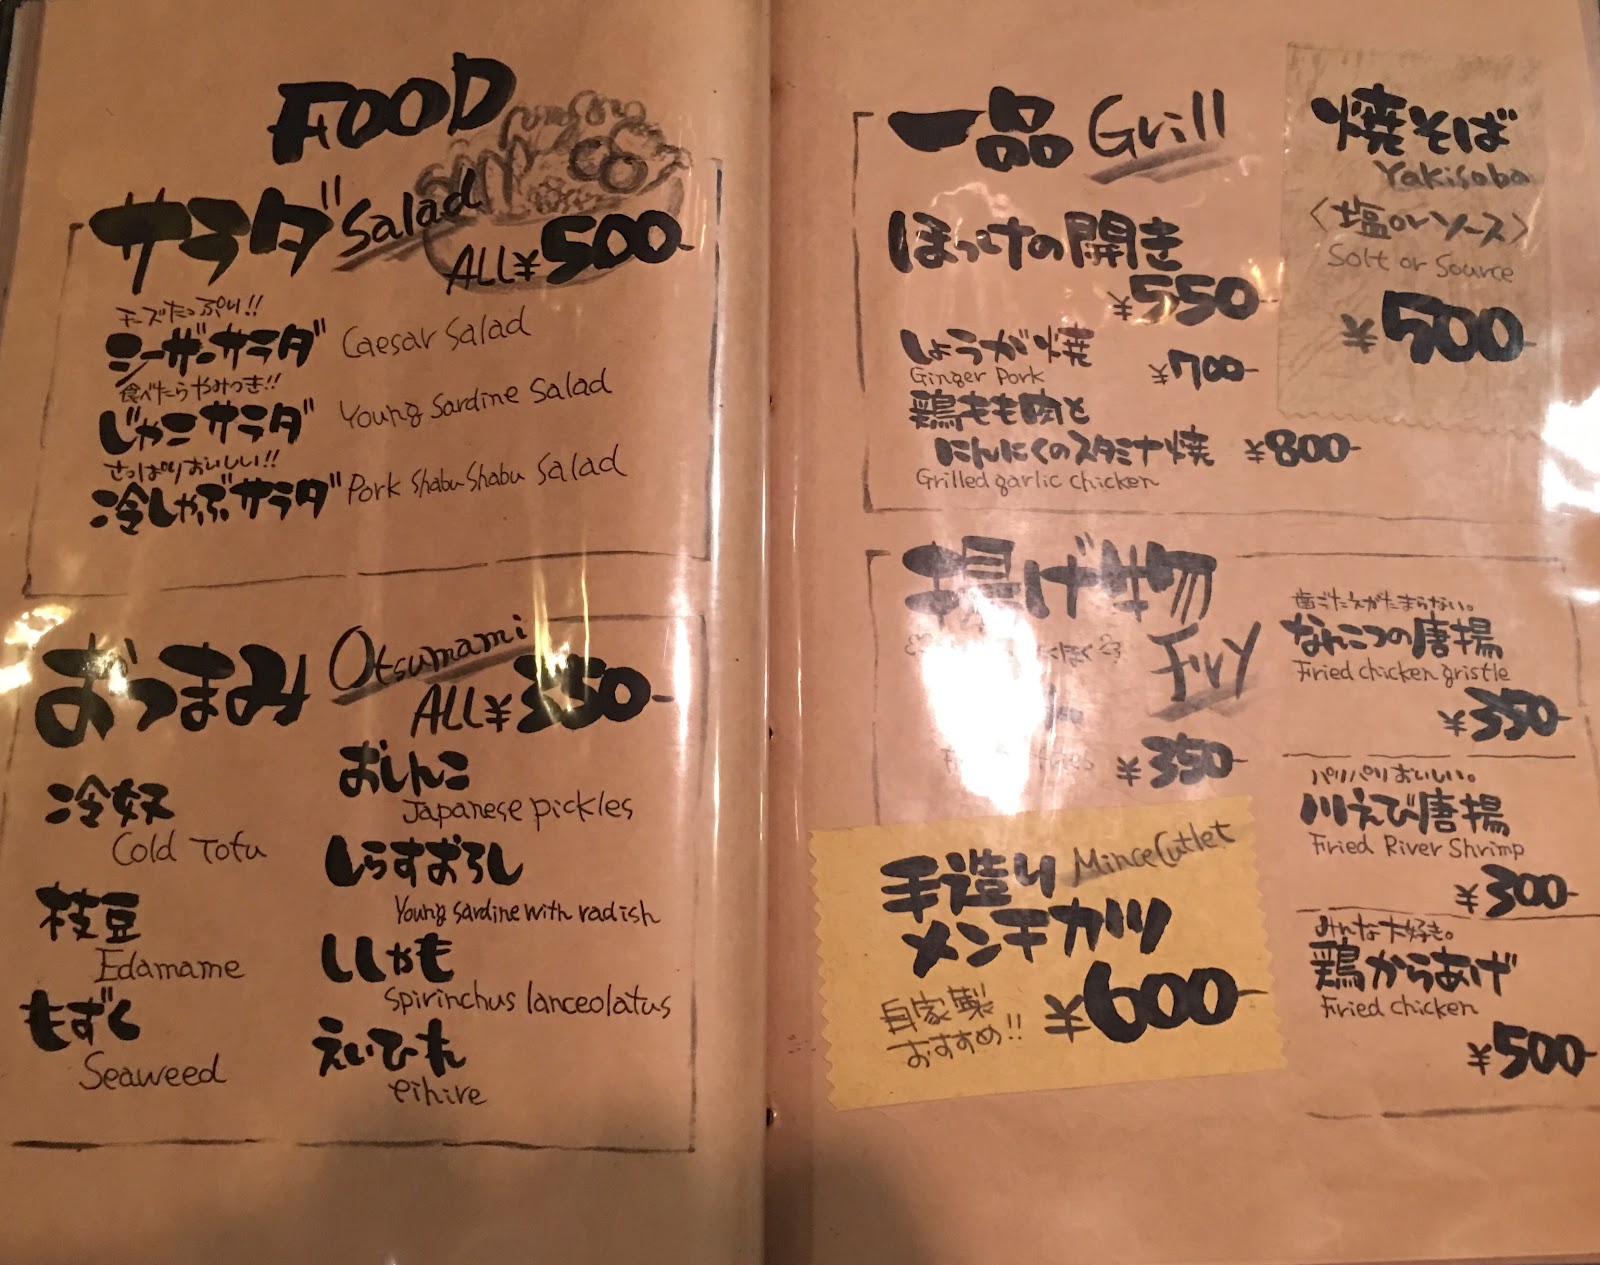 FOOD
サラダ Salad
ALL ¥500-
チーズたっぷり!!
シーザーサラダ Caesar Salad
食べたらやみつき!!
じゃこサラダ Young Sardine Salad
さっぱりおいしい!!
冷しゃぶサラダ Pork Shabu Shabu Salad
おつまみ Otsumami
ALL ¥350-
冷奴
Cold Tofu
枝豆
Edamame
もずく
Seaweed
おしんこ
Japanese pickles
しらすおろし
Young sardine with radish
ししゃも
Spirinchus lanceolatus
えいひれ
eihire
一品 Grill
ほっけの開き
¥550-
しょうが焼 ¥700-
Ginger Pork
鶏もも肉と
にんにくのスタミナ焼 ¥800-
Grilled garlic chicken
焼そば
Yakisoba
〈塩orソース〉
Solt or Source
¥500
揚げ物
Fry
¥350-
手造り Mince Cutlet
メンチカツ
自家製
おすすめ!! ¥600-
歯ごたえがたまらない。
なんこつの唐揚
Fried chicken gristle
¥350-
パリパリおいしい。
川えび唐揚
Fried River Shrimp
¥300-
みんな大好き。
鶏からあげ
Fried chicken
¥500-